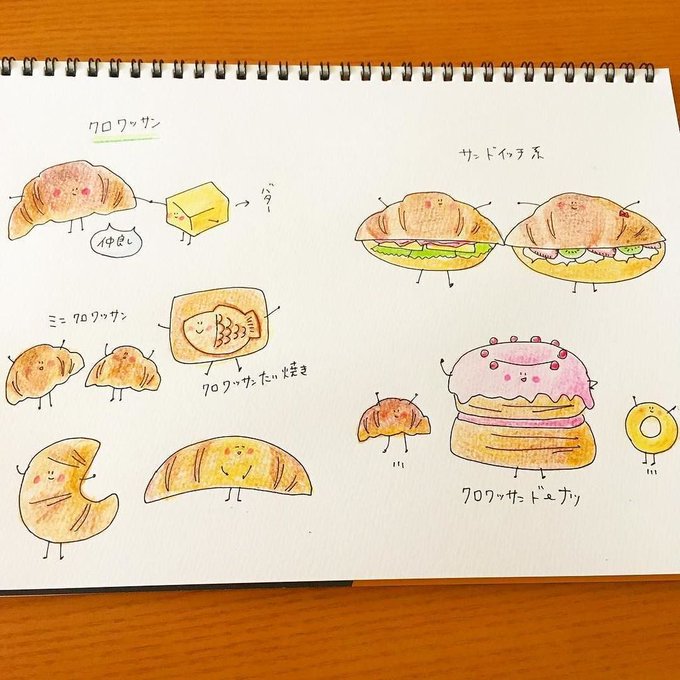 クロワッサン
バター
仲良し
ミニクロワッサン
クロワッサンたい焼き
サンドイッチ系
クロワッサンドーナツ